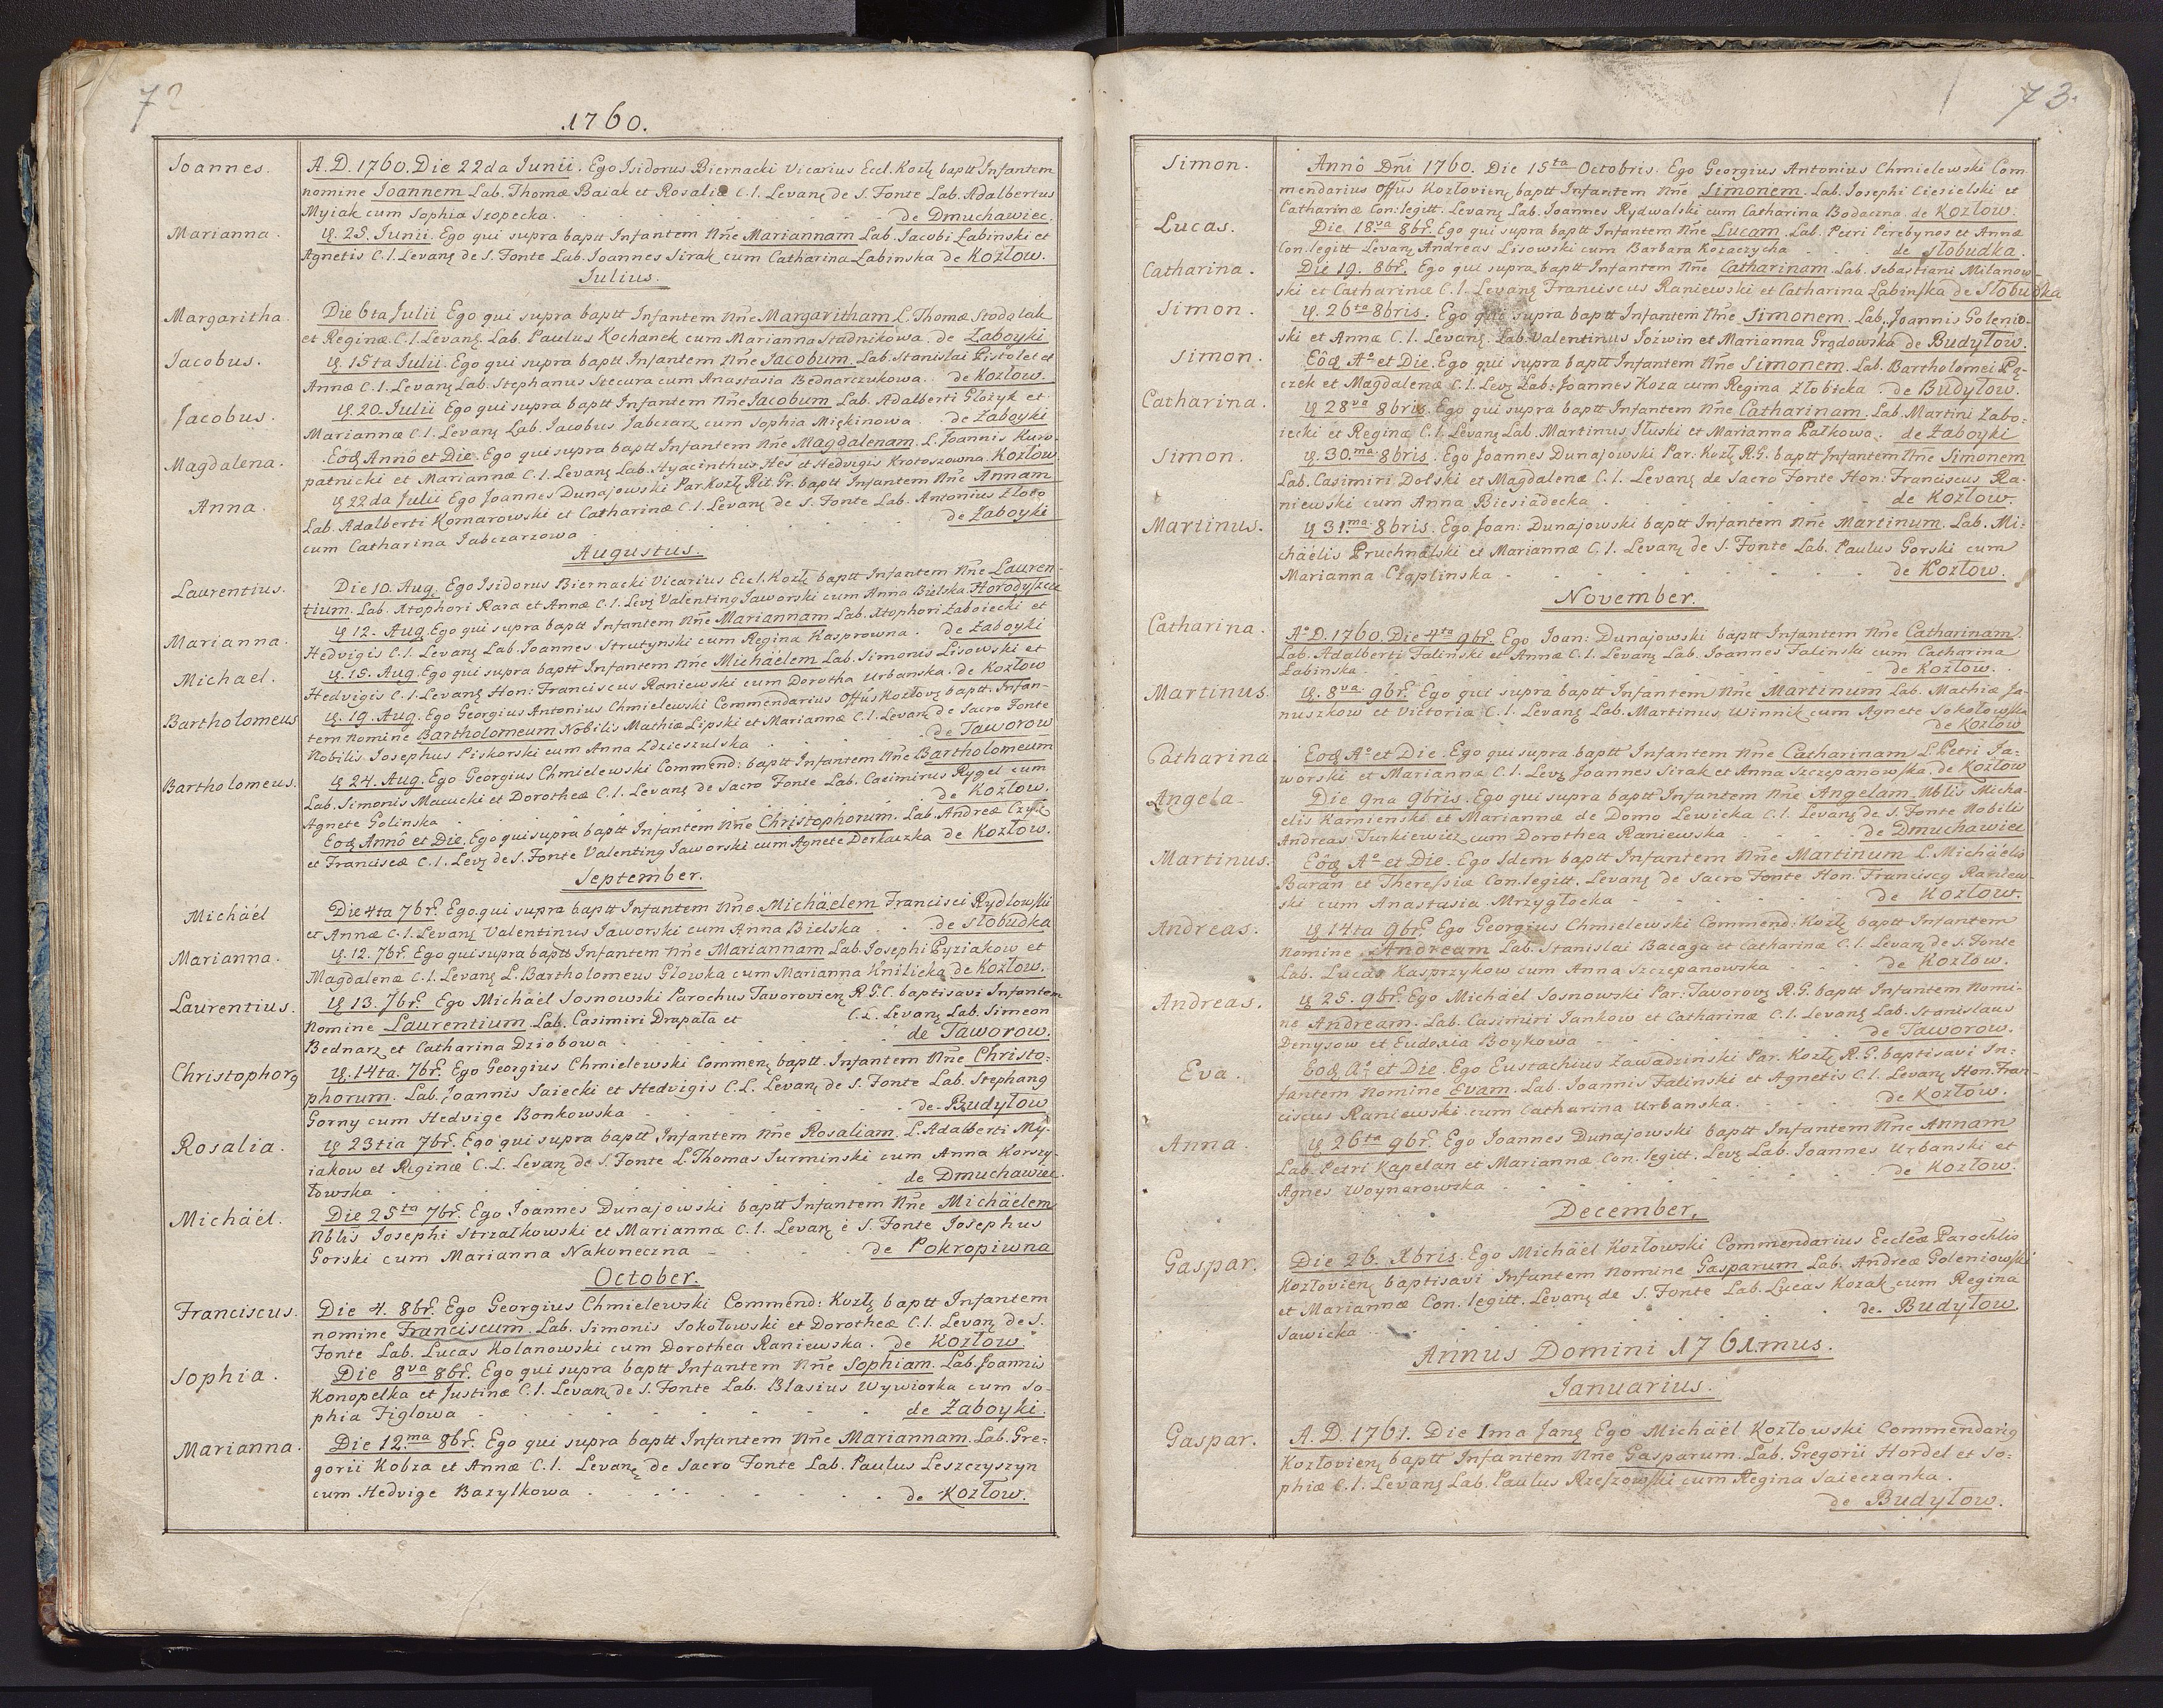 72
.1760.
Joannes. A.D. 1760. Die 22da Junii. Ego Isidorus Biernacki Vicarius Eccl. Kozł baptt Infantem
nomine Joannem Lab. Thomæ Baiak et Rosaliæ C.l. Levanę de S. Fonte Lab. Adalbertus
Myiak cum Sophia Szopecka. de Dmuchawiec.
Marianna. 25. Junii. Ego qui supra baptt Infantem Nñe Mariannam Lab. Jacobi Łabinski et
Agnetis C.l. Levanę de S. Fonte Lab. Joannes Sirak cum Catharina Łabinska de Kozłow.
Julius.
Margaritha. Die 6ta Julii Ego qui supra baptt Infantem Nñe Margaritham L. Thomæ Stodolak
et Reginæ. C.l. Levanę. Lab. Paulus Kochanek cum Marianna Stadnikowa. de Zaboyki
Jacobus. 15ta Julii. Ego qui supra baptt Infantem Nñe Jacobum. Lab. Stanislai Pistolet et
Annæ C.l. Levanę Lab. Stephanus Stecura cum Anastasia Bednarczukowa. de Kozłow.
Jacobus. 20. Julii Ego qui supra baptt Infantem Nñe Jacobum Lab. Adalberti Głożyk et
Mariannæ C.l. Levanę Lab. Jacobus Jabczarz cum Sophia Miękinowa. de Zaboyki
Magdalena. Eôdę Annô et Die. Ego qui supra baptt Infantem Nñe Magdalenam. L. Joannis Kuro-
patnicki et Mariannæ C.l. Levanę Lab. Hyacinthus Hes et Hedvigis Krotoszowna. Kozłow
Anna. 22da Julii Ego Joannes Dunajowski Par Kozł Rit. Gr. baptt Infantem Nñe Annam
Lab. Adalberti Komarowski et Catharinæ C.l. Levanę de S. Fonte Lab. Antonius Złoto
cum Catharina Jabczarzowa. de Zaboyki
Augustus.
Laurentius. Die 10. Aug. Ego Isidorus Biernacki Vicarius Eccl. Kozł baptt Infantem Nñe Lauren-
tium. Lab. Xtophori Rara et Annæ C.l. Levę Valentinę Jaworski cum Anna Bielska. Horodyszcze
Marianna. 12. Aug. Ego qui supra baptt Infantem Nñe Mariannam Lab. Xtophori Zaboiecki et
Hedvigis C.l. Levanę Lab. Joannes Strutynski cum Regina Kasprowna. de Zaboyki
Michael. 15. Aug. Ego qui supra baptt Infantem Nñe Michäelem Lab. Simonis Lisowski et
Hedvigis C.l. Levanę Hon: Franciscus Raniewski cum Dorotha Urbanska. de Kozłow
Bartholomeus 19. Aug. Ego Georgius Antonius Chmielewski Commendarius Offûs Kozłovę baptt. Infan-
tem Nomine Bartholomeum Nobilis Mathiæ Lipski et Mariannæ C.l. Levanę de Sacro Fonte
Nobilis Josephus Piskorski cum Anna Zdzieszulska. de Taworow
Bartholomeus. 24. Aug. Ego Georgius Chmielewski Commend: baptt Infantem Nñe Bartholomeum
Lab. Simonis Macucki et Dorotheæ C.l. Levanę de Sacro Fonte Lab. Casimirus Rygel cum
Agnete Golinska. de Kozłow.
Eodę Annô et Die. Ego qui supra baptt Infantem Nñe Christophorum. Lab. Andreæ Czyk
et Franciscæ C.l. Levę de S. Fonte Valentinę Jaworski cum Agnete Derkaczka de Kozłow.
September.
Michäel Die 4ta 7br̃. Ego qui supra baptt Infantem Nñe. Michäelem Francisci Rydlowski
et Annæ C.l. Levanę Valentinus Jaworski cum Anna Bielska. de Słobudka
Marianna. 12. 7br̃. Ego qui supra baptt Infantem Nñe Mariannam Lab. Josephi Pyziakow et
Magdalenæ C.l. Levanę L. Bartholomeus Głowka cum Marianna Knilicka de Kozłow.
Laurentius. 13. 7br̃. Ego Michäel Sosnowski Parochus Tavorovienę R.G.C. baptisavi Infantem
Nomine Laurentium Lab. Casimiri Drapała et C.L. Levanę Lab. Simeon
Bednarz et Catharina Dziobowa. de Taworow.
Christophorę 14ta. 7br̃. Ego Georgius Chmielewski Commenę baptt. Infantem Nñe Christo-
phorum. Lab. Joannis Saiecki et Hedvigis C.L. Levanę de S. Fonte Lab. Stephanę
Gorny cum Hedvige Bonkowska. de Budyłow
Rosalia. 23tia 7br̃. Ego qui supra baptt Infantem Nñe Rosaliam. L. Adalberti My-
iakow et Reginæ C.L. Levanę de S. Fonte L. Thomas Surminski cum Anna Korszy-
łowska. de Dmuchawiec
Michäel. Die 25ta 7br̃. Ego Joannes Dunajowski baptt Infantem Nñe Michäelem
Nblis Josephi Strzałkowski et Marianna C.l. Levanę è S. Fonte Josephus
Gorski cum Marianna Nakoneczna. de Pokropiwna
October.
Franciscus. Die 4. 8br̃. Ego Georgius Chmielewski Commend: Kozłę baptt Infantem
nomine Franciscum. Lab. Simonis Sokołowski et Dorotheæ C.l. Levanę de S.
Fonte Lab. Lucas Kolanowski cum Dorothea Raniewska. de Kozłow.
Sophia. Die 8va 8br̃. Ego qui supra baptt Infantem Nñe Sophiam. Lab. Joannis
Konopelka et Justinæ C.l. Levanę de S. Fonte Lab. Blasius Wywiorka cum So-
phia Figlowa. de Zaboyki.
Marianna. Die 12.ma 8br̃. Ego qui supra baptt Infantem Nñe Mariannam. Lab. Gre-
gorii Kobza et Annæ C.l. Levanę de Sacro Fonte Lab. Paulus Leszczyszyn
cum Hedvige Bazylkowa. de Kozłow.
73.
Simon. Annô Dñi 1760. Die 15ta Octobris. Ego Georgius Antonius Chmielewski Com-
mendarius Offûs Kozłovienę baptt Infantem Nñe Simonem. Lab. Josephi Ciesielski et
Catharinæ Con: legitt. Levanę Lab. Joannes Rydwalski cum Catharina Bodaczna. de Kozłow.
Lucas. Die 18va 8br̃. Ego qui supra baptt Infantem Nñe Lucam. Lab. Petri Perebynos et Annæ
Con. legitt Levanę Andreas Lisowski cum Barbara Kozaczycha. de Słobudka.
Catharina. Die 19. 8br̃. Ego qui supra baptt Infantem Nñe Catharinam. Lab. Sebastiani Milanow-
ski et Catharinæ C.l. Levanę Franciscus Raniewski et Catharina Łabinska de Słobudka
Simon. 26ta 8bris. Ego qui supra baptt Infantem Nñe Simonem. Lab. Joannis Golenio-
ski et Annæ C.l. Levanę. Lab. Valentinus Jożwin et Marianna Grądowska de Budyłow.
Simon. Eôdę Aº et Die. Ego qui supra baptt Infantem Nñe Simonem. Lab. Bartholomei Pą-
czek et Magdalenæ C.l. Levę Lab: Joannes Koza cum Regina Złobicka de Budyłow.
Catharina. 28va 8bris. Ego qui supra baptt Infantem Nñe Catharinam. Lab. Martini Zabo-
iecki et Reginæ C.l. Levanę Lab. Martinus Słuski et Marianna Pałkowa. de Zaboyki
Simon. 30.ma 8bris. Ego Joannes Dunajowski Par. Kozł R.G. baptt Infantem Nñe Simonem
Lab. Casimiri Dolski et Magdalenæ C.l. Levanę de Sacro Fonte Hon: Franciscus Ra-
niewski cum Anna Biesiadecka. de Kozłow.
Martinus. 31.ma 8bris. Ego Joan: Dunajowski baptt Infantem Nñe Martinum. Lab. Mi-
chäelis Pruchnalski et Mariannæ C.l. Levanę de S. Fonte Lab. Paulus Gorski cum
Marianna Cząplinska. de Kozłow.
November.
Catharina. AºD. 1760. Die 4ta 9br̃. Ego Joan: Dunajowski baptt Infantem Nñe Catharinam.
Lab. Adalberti Falinski et Annæ C.l. Levanę Lab. Joannes Falinski cum Catharina
Łabinska. de Kozłow.
Martinus. 8va 9br̃. Ego qui supra baptt Infantem Nñe Martinum Lab. Mathiæ Ja-
nuszkow et Victoriæ C.l. Levanę Lab. Martinus Winnik cum Agnete Sokołowska
de Kozłow
Catharina Eodę Aº et Die. Ego qui supra baptt Infantem Nñe Catharinam L. Petri Ja-
worski et Mariannæ C.l. Levę Joannes Sirak et Anna Szczepanowska. de Kozłow
Angela. Die 9na 9bris. Ego qui supra baptt Infantem Nñe Angelam. Nblis Micha-
elis Kamienski et Mariannæ de Domo Lewicka C.l. Levanę de S. Fonte Nobilis
Andreas Turkiewicz cum Dorothea Raniewska. de Dmuchawiec
Martinus. Eôdę Aº et Die. Ego Idem baptt Infantem Nñe Martinum L. Michäelis
Baran et Theressiæ Con. legitt. Levanę de Sacro Fonte Hon. Franciscę Raniew-
ski cum Anastasia Mrzygłocka. de Kozłow.
Andreas. 14ta 9br̃. Ego Georgius Chmielewski Commend: Kozłę baptt Infantem
Nomine Andream Lab. Stanislai Bacaga et Catharinæ C.l. Levanę de S. Fonte
Lab. Lucas Kasprzykow cum Anna Szczepanowska. de Kozłow.
Andreas. 25. 9br̃. Ego Michäel Sosnowski Par: Tavorovę R.G. baptt Infantem Nomi-
ne Andream. Lab. Casimiri Jankow et Catharinæ C.l. Levanę Lab. Stanislaus
Denysow et Eudoxia Boykowa. de Taworow.
Eva. Eodę Aº et Die. Ego Eustachius Zawadzinski Par. Kozł R.G. baptisavi In-
fantem Nomine Evam. Lab. Joannis Falinski et Agnetis C.l. Levanę Hon. Fran-
ciscus Raniewski cum Catharina Urbanska. de Kozłow.
Anna. 26ta 9br̃. Ego Joannes Dunajowski baptt Infantem Nñe Annam
Lab. Petri Kapelan et Mariannæ Con. legitt. Levę Lab. Joannes Urbanski et
Agnes Woynarowska. de Kozłow.
December.
Gaspar. Die 26. Xbris. Ego Michäel Kozłowski Commendarius Eccleæ Parochlis
Kozłovienę baptisavi Infantem Nomine Gasparum Lab. Andreæ Goleniowski
et Mariannæ Con. legitt. Levanę de S. Fonte Lab. Lucas Kozak cum Regina
Sawicka. de Budyłow.
Annus Domini 1761.mus.
Januarius.
Gaspar. A.D. 1761. Die 1ma Janę Ego Michäel Kozłowski Commendarię
Kozłovienę baptt Infantem Nñe Gasparum. Lab. Gregorii Hordel et So-
phiæ C.l. Levanę Lab. Paulus Rzeszowski cum Regina Saieczanka.
de Budyłow.